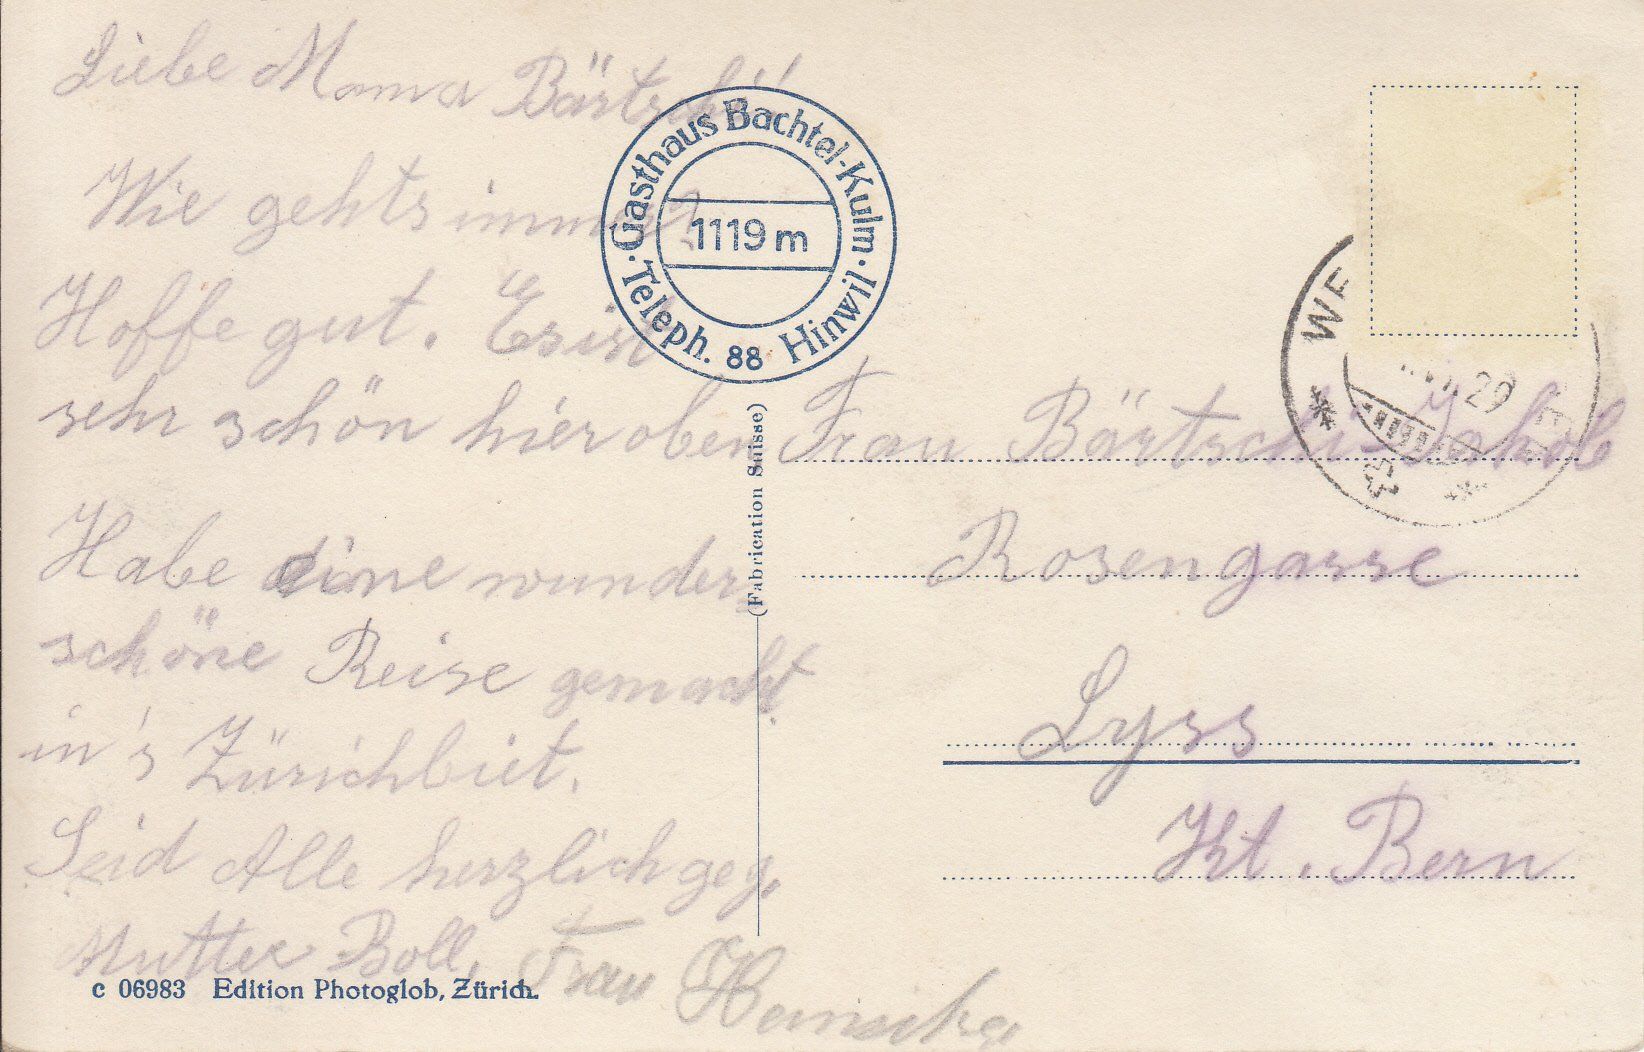 Liebe Mama Bärtschi!
Wie gehts immer?
Hoffe gut. Es ist
sehr schön hier oben
Habe eine wunder
schöne Reise gemacht
in's Zürichbiet.
Seid Alle herzlich geg.
Mutter Boll, Frau
c 06983 Edition Photoglob, Zürich.
Gasthaus Bachtel-Kulm
1119 m
Teleph. 88 Hinwil
(Fabrication Suisse)
29
Frau Bärtschi-Jakob
Rosengasse
Lyss
Kt. Bern